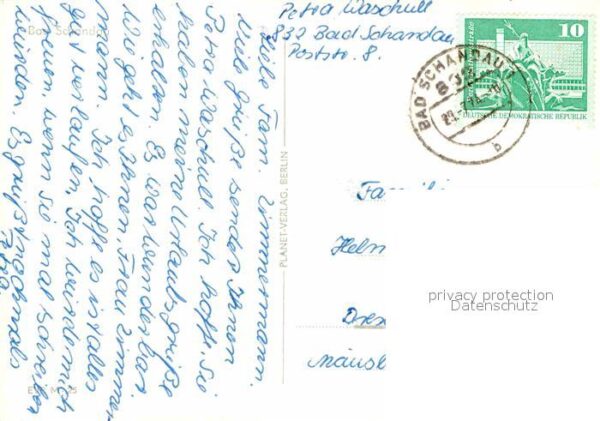 Petra Waschull
832 Bad Schandau
Poststr. 8.
10
DEUTSCHE DEMOKRATISCHE REPUBLIK
BAD SCHANDAU 1
832
b
Bad Schandau
Liebe Fam. Zimmermann.
Viele Grüße sendet Ihnen
Petra Waschull. Ich hoffe, Sie
haben meine Urlaubsgrüße
erhalten. Es war wunderbar
Wie geht es Ihnen, Frau Zimmer
mann. Ich hoffe es ist alles
gut verlaufen. Ich würde mich
freuen wenn Sie mal schreiben
würden. Es grüßt nochmals
Petra
PLANET-VERLAG, BERLIN
Famili
Helm
Dres
Mäusl
privacy protection
Datenschutz